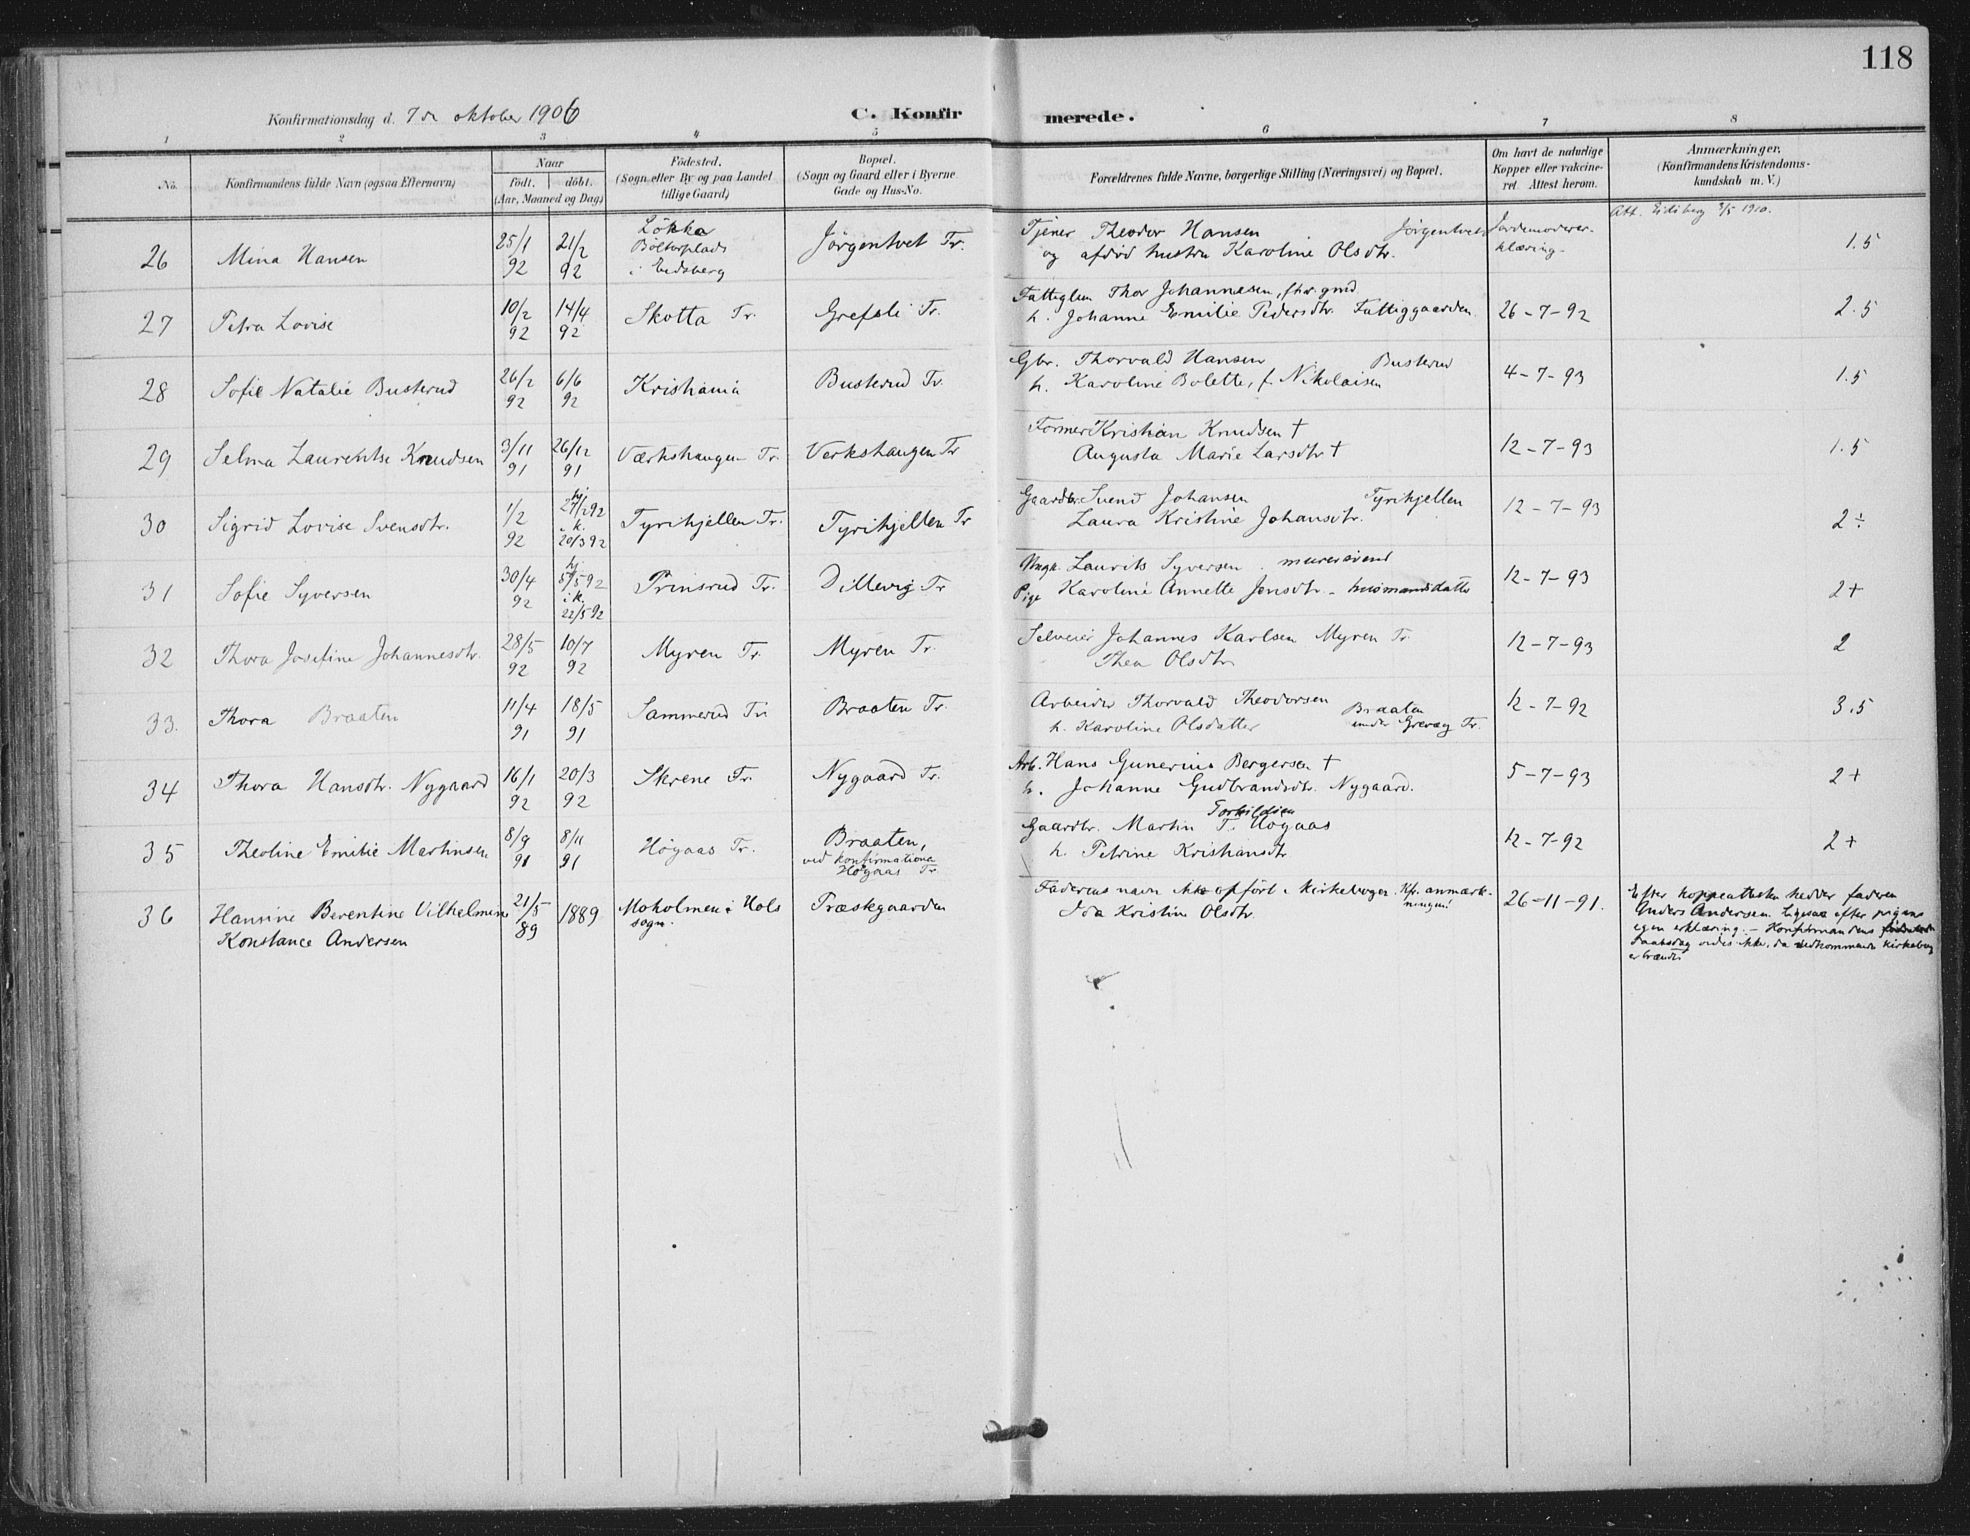 118
Konfirmationsdag d. 7de oktober 1906
C. Konfirmerede.
1 2 3 4 5 6 7 8
No.
Konfirmandens fulde Navn (ogsaa Efternavn)
Naar
födt. döbt.
(Aar, Maaned og Dag)
Födested.
(Sogn eller By og paa Landet
tillige Gaard)
Bopæl.
(Sogn og Gaard eller i Byerne
Gade og Hus-No.
Forældrenes fulde Navne, borgerlige Stilling (Næringsvei) og Bopæl.
Om havt de naturlige
Kopper eller vakcine-
ret. Attest herom.
Anmærkninger.
(Konfirmandens Kristendoms-
kundskab m. V.)
Att. Eidsberg 3/5 1910.
26 Mina Hansen 25/1 92 21/2 92 Lökka
Böltorplads
i Eidsberg
Jörgentvet Tr.
Tjener Theodor Hansen Jörgentvet
og afdöd hustru Karoline Olsdtr.
Jordemoderer-
klæring.
1.5
27 Petra Lovise 10/2 92 14/4 92 Skotta Tr. Grefsli Tr.
Fattiglem Thor Johannesen,
h. Johanne Emilie Pedersdtr. Fattiggaarden.
26-7-92 2.5
28 Sofie Natalie Busterud 26/2 92 6/6 92 Kristiania Busterud Tr.
Gbr. Thorvald Hansen Busterud
h. Karoline Bolette, f. Nikolaisen
4-7-93 1.5
29 Selma Laurentse Knudsen 3/11 91 26/12 91 Værkshaugen Tr. Verkshaugen Tr
Former Kristian Knudsen †
Augusta Marie Larsdtr †
12-7-93 1.5
30 Sigrid Lovise Svensdtr. 1/2 92 hj. 27/2 92 i k. 20/3 92 Tyrihjellen Tr. Tyrihjellen Tr
Gaardbr. Svend Johansen Tyrihjellen
Laura Kristine Johansdtr.
12-7-93 2÷
31 Sofie Syversen 30/4 92 hj. 5/5 92 i k. 22/5 92 Prinsrud Tr. Dillevig Tr
Ungk. Laurits Syversen. murersvend
Pige Karoline Annette Jensdtr. - husmandsdatter
12-7-93 2+
32 Thora Josefine Johannesdtr. 28/5 92 10/7 92 Myren Tr. Myren Tr.
Selveier Johannes Karlsen Myren Tr.
Thea Olsdtr
12-7-93 2
33. Thora Braaten 11/4 91 18/5 91 Sammerud Tr. Braaten Tr.
Arbeider Thorvald Theodorsen Braaten
h. Karoline Olsdatter under Grevæg Tr.
12-7-92 3.5
34 Thora Hansdtr. Nygaard 16/1 92 20/3 92 Skrene Tr. Nygaard Tr.
Arb. Hans Gunerius Bergersen †
h. Johanne Gudbrandsdtr. Nygaard.
5-7-93 2+
35 Theoline Emilie Martinsen 8/9 91 8/11 91 Högaas Tr. Braaten,
ved konfirmationen
Högaas Tr
Torkildsen
Gaardbr. Martin T. Högaas
h. Petrine Kristiansdtr
12-7-92 2+
36 Hansine Berentine Vilhelmine
Konstance Andersen
21/5 89 1889 Moholmen i Hols
sogn.
Træskgaarden
Faderens navn ikke opfört i kirkebogen. Kfr. anmærk-
ningen!
Ida Kristine Olsdtr.
26-11-91.
Efter koppeattesten hedder faderen
Anders Andersen. Ligesaa efter pigens
egen erklæring. - Konfirmandens
Daabsdag vides ikke, da vedkommende kirkebog
er brændt